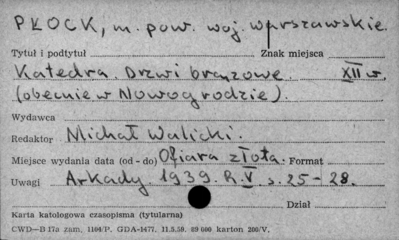 PŁOCK, m. pow. woj. warszawskie.
Tytuł i podtytuł Znak miejsca
Katedra. Drzwi bronzowe. XII w.
(obecnie w Nowogrodzie).
Wydawca
Redaktor Michał Walicki.
Miejsce wydania data (od - do) Ofiara złota. Format
Uwagi Arkady. 1939. R. V. s. 25-28.
Dział
Karta katologowa czasopisma (tytularna)
CWD—B 17a zam. 1104/P. GDA-1477. 11.5.59. 89 600 karton 200/V.